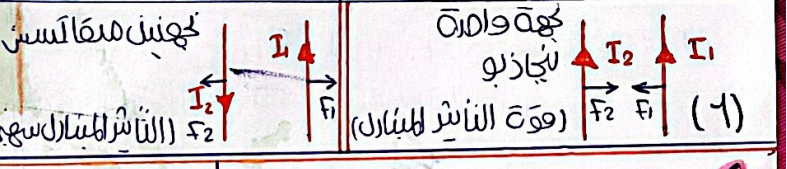 لجهة واحدة
تجاذبو
I₂
I₁
F₂
F₁
(قوة التأثير المتبادل)
(1)
لجهتين متعاكستين
I₁
I₂
F₂
F₁
(التأثير المتبادل